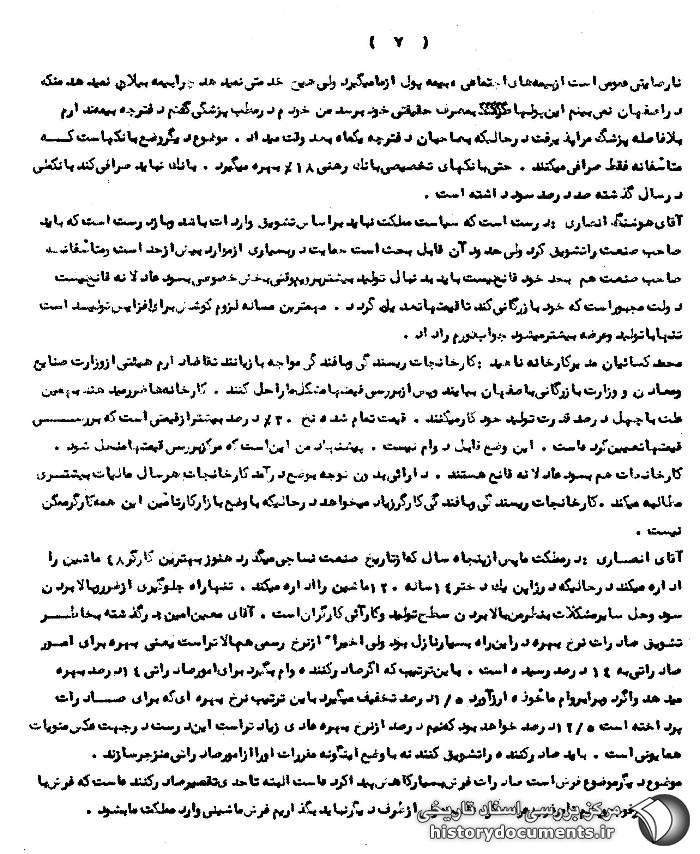 ( ۷ )
نارضایتی عمومی است از بیمه‌های اجتماعی ، بیمه پول از ما میگیرد ولی هیچ خدمتی نمیدهد چرا بیمه بیلان نمیدهد منکه
در اصفهان نمی‌بینم این پولها بمصرف حقیقتی خود برسد من خودم در مطب پزشکی گفتم دفترچه بیمه ندارم
بلافاصله پزشک مرا پذیرفت در حالیکه بصاحبان دفترچه یکماه بعد وقت میداد . موضوع دیگر وضع بانکهاست کــه
متأسفانه فقط صرافی میکنند . حتی بانکهای تخصصی بانک رهنی ۱۸٪ بهره میگیرد . بانک نباید صرافی کند بانکملی
در سال گذشته صد در صد سود داشته است .
آقای هوشنگ انصاری : درست است که سیاست مملکت نباید بر اساس تشویق واردات باشد و باز درست است که باید
صاحب صنعت را تشویق کرد ولی حدود آن قابل بحث است حمایت در بسیاری از موارد بیش از حد است و متأسفانـــه
صاحب صنعت هم بحد خود قانع نیست باید بدنبال تولید بیشتر برویم وقتی بخش خصوصی بسود عادلانه قانع نیست
دولت مجبور است که خود بازرگانی کند تا قیمتها تعدیل گردد . مهمترین مسأله لزوم کوشش برای افزایش تولید است
تنها با تولید و عرضه بیشتر میشود جواب تورم را داد .
محمد کسائیان مدیر کارخانه ناهید : کارخانجات ریسندگی و بافندگی مواجه با زیانند تقاضا دارم هیئتی از وزارت صنایع
و معادن و وزارت بازرگانی باصفهان بیایند و پس از بررسی قیمتها مشکل ما را حل کنند . کارخانه‌ها ضرر میدهند بهمین
علت با چهل درصد قدرت تولید خود کار میکنند . قیمت تمام شده نخ ۳۰٪ درصد بیشتر از قیمتی است که بررســـی
قیمتها تعیین کرده است . این وضع قابل دوام نیست . پیشنهاد من این است که مرکز بررسی قیمتها منحل شود .
کارخانجات هم بسود عادلانه قانع هستند . دارائی بدون توجه بوضع درآمد کارخانجات هر سال مالیات بیشتــری
مطالبه میکند . کارخانجات ریسندگی و بافندگی کارگر زیاد میخواهد در حالیکه با وضع بازار کار تأمین این همه کارگر ممکن
نیست .
آقای انصــاری : در مملکت ما پس از پنجاه سال که از تاریخ صنعت نساجی میگذرد هنوز بهترین کارگر ۴۸ ماشین را
اداره میکند در حالیکه در ژاپن یک دختر ۱۴ ساله ۱۲۰ ماشین را اداره میکند . تنها راه جلوگیری از ضرر و بالا بردن
سود و حل سایر مشکلات بنظر من بالا بردن سطح تولید و کارآئی کارگران است . آقای معین امین در گذشته بخاطـــر
تشویق صادرات نرخ بهره در این راه بسیار نازل بود ولی اخیراً از نرخ رسمی هم بالاتر است یعنی بهره برای امــور
صادراتی به ۱۴ درصد رسیده است . باین ترتیب که اگر صادر کننده وام بگیرد برای امور صادراتی ۱۴ درصد بهره
میدهد و اگر در برابر وام مأخوذه ارز آورد ۱/۵ درصد تخفیف میگیرد باین ترتیب نرخ بهره ای که برای صــادرات
پرداخته است ۱۲/۵ درصد خواهد بود که نیم درصد از نرخ بهره عادی زیادتر است این درست در جهت عکس منویات
همایونی است . باید صادر کننده را تشویق کنند نه با وضع اینگونه مقررات او را از امور صادراتی منزجر سازند .
موضوع دیگر موضوع فرش است صادرات فرش بسیار کاهش پیدا کرده است البته تا حدی تقصیر صادر کننده است که فرش با
از طرف دیگر نباید بگذاریم فرش ماشینی وارد مملکت ما بشود .
مرکز بررسی اسناد تاریخی
historydocuments.ir